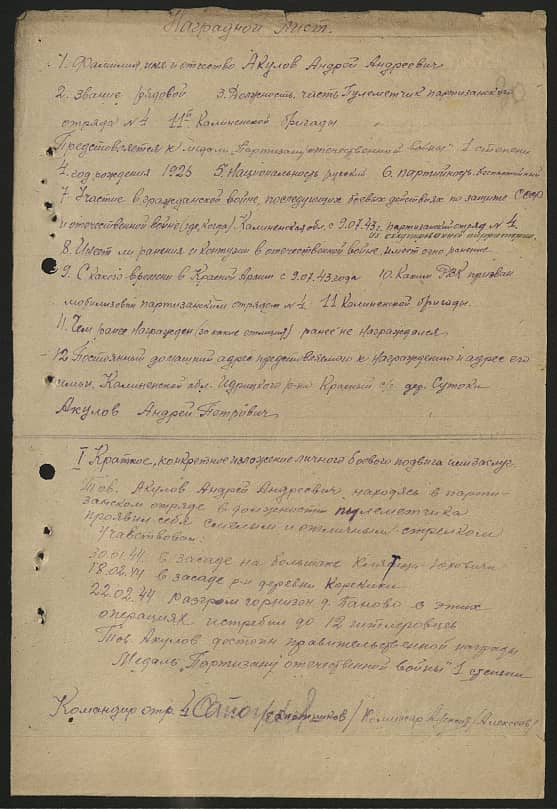 Наградной Лист.
1. Фамилия имя и отчество Акулов Андрей Андреевич
2. Звание рядовой 3. Должность, часть Пулеметчик партизанского
отряда №4 11й Калиненской бригады
Предстовляется к медали „Партизану отечественной войны" 1 степени
4. год рождения 1926 5. Национальность русский 6. партийность беспартийный
7. Участие в гражданской войне, последующих боевых действиях по защите СССР
и отечественной войне (где, когда). Калиненская обл. с 9.07.43г. партизанский отряд №4
на оккупированной территории.
8. Имеет ли ранения и контузии в отечественной войне. имеет одно ранение
9. С какого времени в Красной Армии с 9.07.43 года 10. Каким РВК призван
мобилизован партизанским отрядом №4 11 Калиненской бригады.
11. Чем ранее награжден (за какие отличия) ранее не награждался
12. Постоянный домашний адрес представляемого к награждению и адрес его
семьи. Калиненская обл. Идрицкого р-на Красный с/с дер. Сутоки
Акулов Андрей Петрович
I Краткое, конкретное изложение личного боевого подвига или заслуг.
Тов. Акулов Андрей Андреевич, находясь в парти-
занском отряде в должности пулеметчика
проявил себя смелым и отличным стрелком
Учавствовал:
30.01.44 в засаде на большаке
18.02.44 в засаде р-н деревни
22.02.44 разгром горнизон д. Баново в этих
операциях истребил до 12 гитлеровцев
Тов. Акулов достоин правительственной награды
Медаль „Партизану отечественной войны" 1 степени
Командир отр. 4 /Сапожников/ Комиссар /Алексеев/